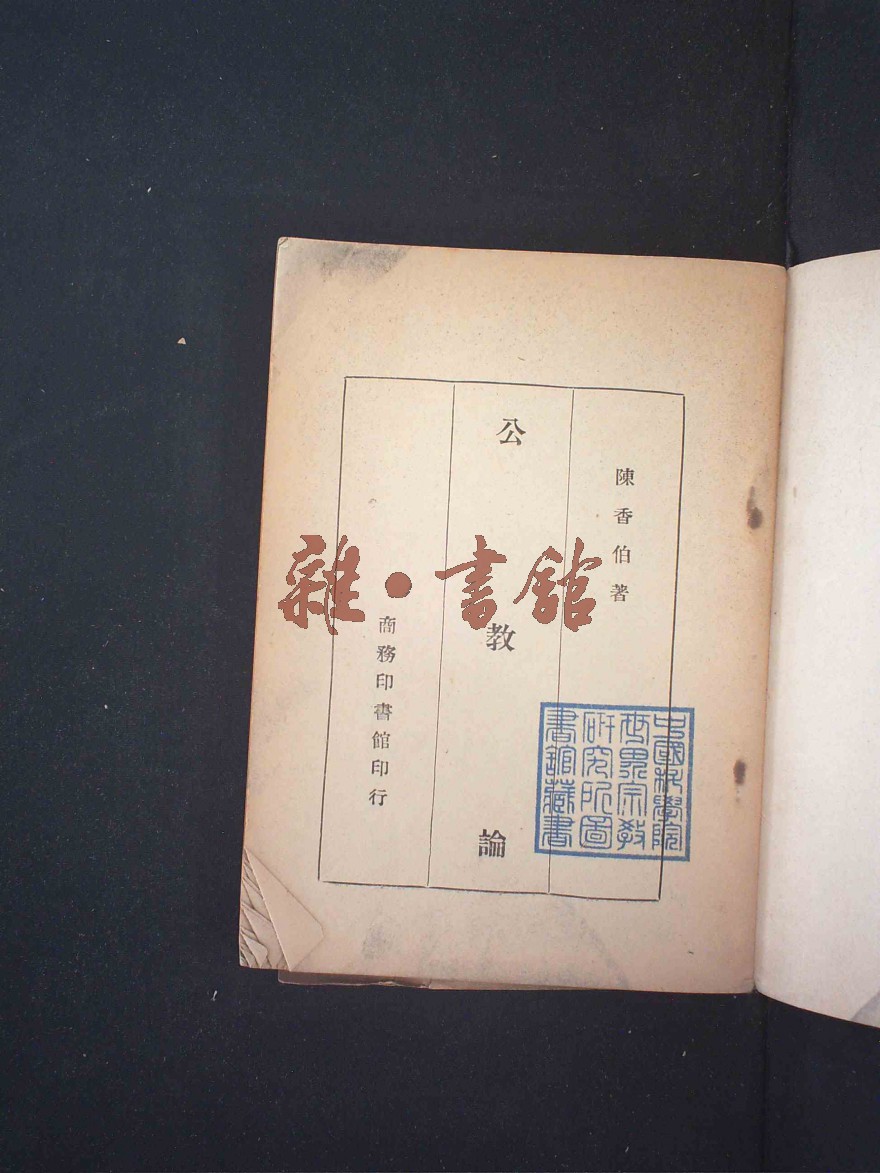 陳香伯著
公教論
商務印書館印行
雜·書館
中國科學院
世界宗教
研究所圖
書館藏書